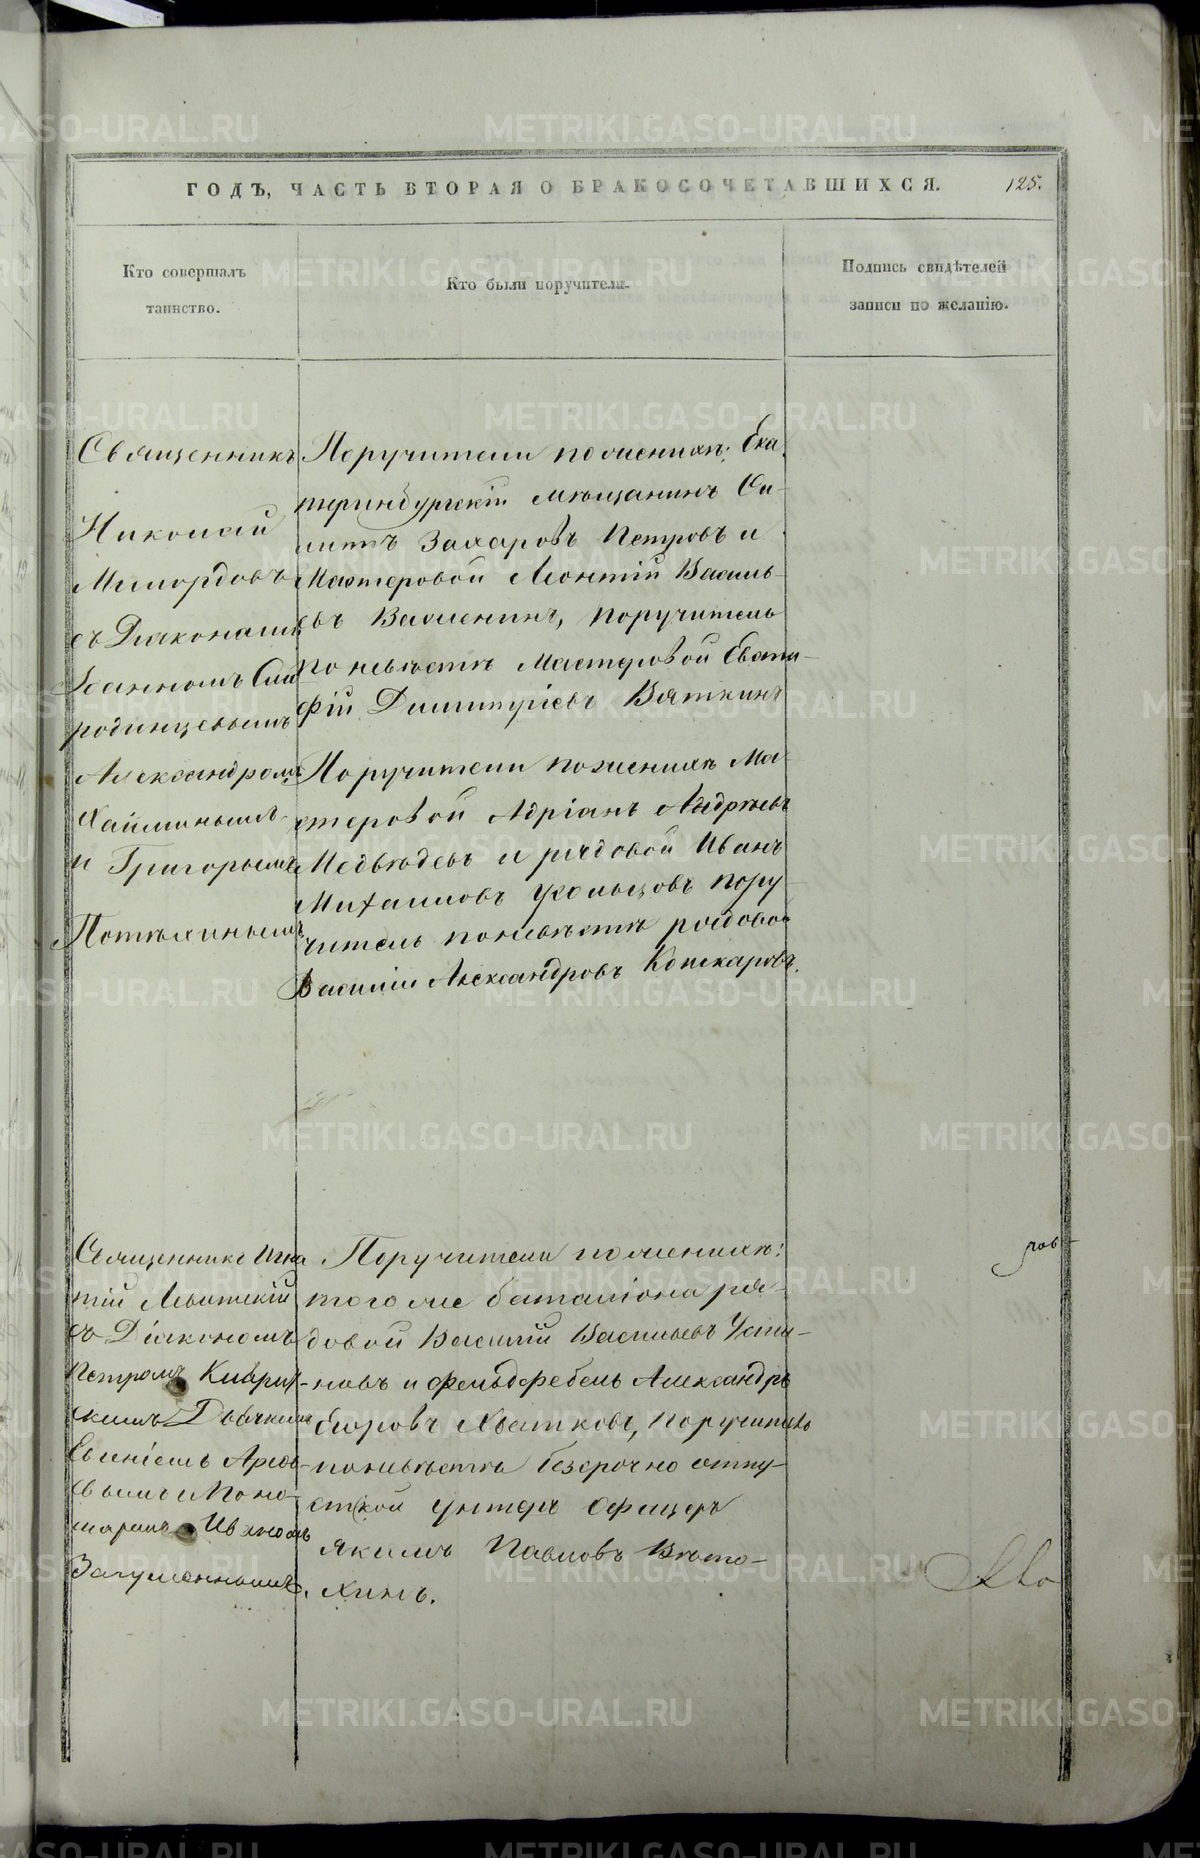 ГОДЪ, ЧАСТЬ ВТОРАЯ О БРАКОСОЧЕТАВШИХСЯ.
125.
Кто совершалъ
таинство.
Кто были поручители.
Подпись свидѣтелей
записи по желанію.
Священникъ
Николай
Милордовъ
съ Діаконами
Іоанномъ
родинцевымъ
Александромъ
и Григорьемъ
Поручители по женихѣ: Ека
теринбургскій мѣщанинъ Си-
Захаровъ Петровъ и
Мастеровой Леонтій Василь-
евъ Важенинъ, поручитель
по невѣстѣ Мастеровой Евста-
фій Димитріевъ Вяткинъ
Поручители по женихѣ Ма
стеровой Адріанъ Андреевъ
Медвѣдевъ и рядовой Иванъ
Михаиловъ пору
читель по невѣстѣ рядовой
Василій Александровъ
Священникъ Игна
тій Левитскій
съ Діакономъ
Петромъ
Дьячкомъ
Евгеніемъ
и Поно-
маремъ Иваномъ
Загуменнымъ.
Поручители по женихѣ:
того же баталіона ря-
довой Василій Васильевъ Усти-
новъ и фельдфебель Александръ
Егоровъ Хватковъ, поручитель
по невѣстѣ безсрочно отпу-
стной унтеръ офицеръ
Якимъ Павловъ
хинъ.
METRIKI.GASO-URAL.RU